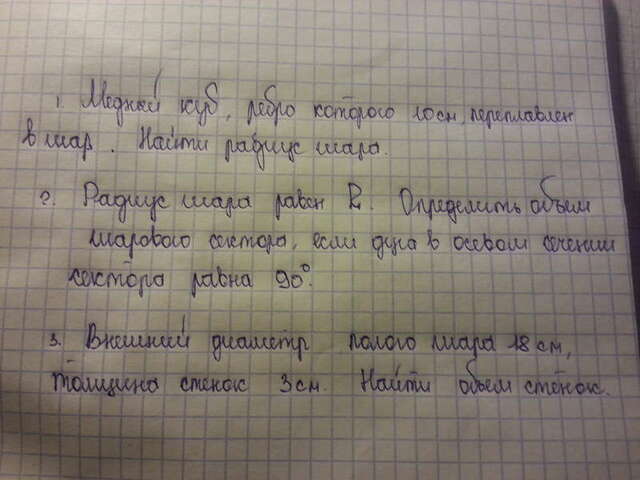 1. Медный куб, ребро которого 10см, переплавлен
в шар. Найти радиус шара.
2. Радиус шара равен R. Определить объем
шарового сектора, если дуга в осевом сечении
сектора равна 90°.
3. Внешний диаметр полого шара 18 см,
толщина стенок 3 см. Найти объем стенок.